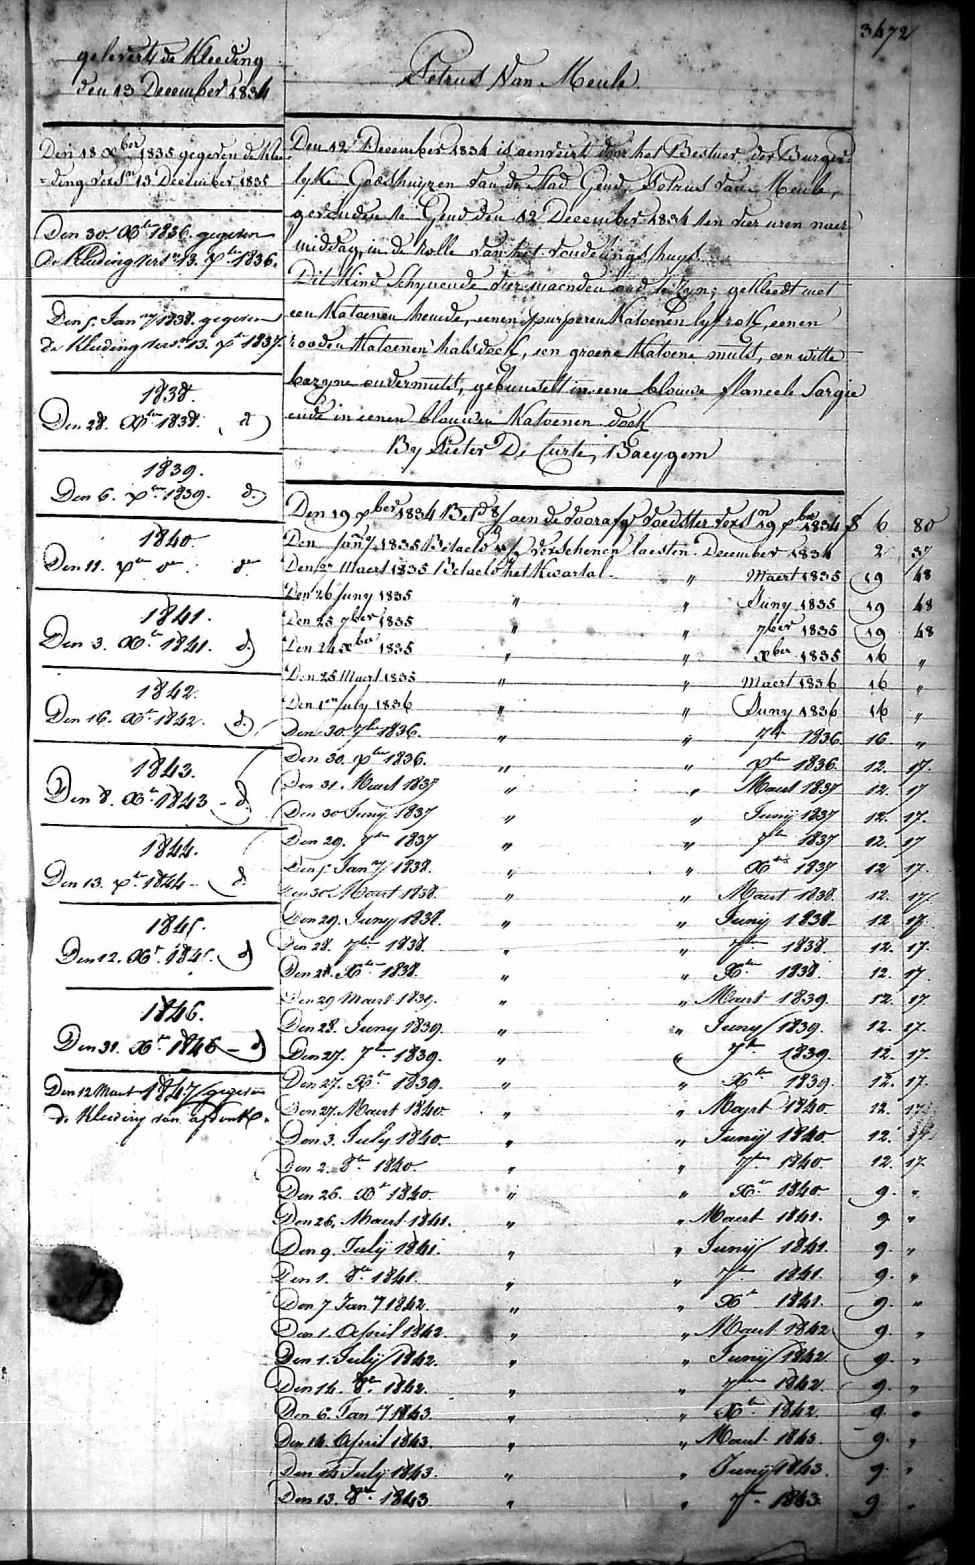 3472
Petrus Van Meule
geleverd de Kleeding
den 13 December 1834
Den 18 xber 1835 gegeven de klee
=ding versn 13 December 1835
Den 30 Xber 1836 gegeven
De Kleeding versn 13 Xber 1836.
Den 5. Jany 1838. gegeven
De Kleeding versn 13 Xber 1837
1838.
Den 28. Xber 1838. do
1839.
Den 6. Xber 1839. do
1840.
Den 11. Xber do do
1841.
Den 3. Xber 1841. do
1842.
Den 16. Xber 1842. do
1843.
Den 8. Xber 1843 - do
1844.
Den 13. Xber 1844 - do
1845.
Den 12. Xber 1845. do
1846.
Den 31. Xber 1846 - do
Den 12 Maert 1847 gegeven
de Kleeding van
Den 12 December 1834 is aenveird door het Bestuer der Burger=
lyke Godshuyzen van de Stad Gend, Petrus Van Meule,
gevonden te Gend den 12 December 1834 ten vier uren naer
middag, in de rolle van het vondelings huys
Dit Kind Schynende vier maenden oud te zyn; gekleedt met
een Katoenen hemde, eenen purperen Katoenen lyfrok, eenen
rooden Katoenen halsdoek, een groene Katoene muts, een witte
bazyne ondermuts, gebusselt in eene blouwe flaneele Sargie
ende in eenen blouwen Katoenen doek
By Pieter De Curte, Baeygem
Den 19 xber 1834 Betd aen de voorafge voedster versn 19 xber 1834 f 6 80
Den Jany 1835 Betaeld verschenen laesten December 1834 2 37
Den Maert 1835 Betaeld het Kwartal " Maert 1835 19 48
Den 26 Juny 1835 " " Juny 1835 19 48
Den 25 7ber 1835 " " 7ber 1835 19 48
Den 24 xber 1835 " " xber 1835 16 "
Den 25 Maert 1835 " " Maert 1836 16 "
Den 1en July 1836 " " Juny 1836 16 "
Den 30. 7ber 1836. " " 7ber 1836 16 "
Den 30. Xber 1836. " " Xber 1836. 12. 17.
Den 31. Maert 1837 " " Maert 1837 12. 17
Den 30 Juny 1837 " " Junij 1837 12. 17.
Den 29. 7ber 1837 " " 7ber 1837 12. 17
Den 5. Jany 1838. " " Xber 1837 12 17.
Den 30 Maert 1838. " " Maert 1838. 12. 17.
Den 29. Juny 1838. " " Junij 1838. 12 17.
Den 28. 7ber 1838. " " 7ber 1838 12. 17.
Den 28. Xber 1838. " " Xber 1838 12. 17.
Den 29 Maert 1839. " " Maert 1839. 12. 17
Den 28. Juny 1839. " " Juny 1839. 12. 17.
Den 27. 7ber 1839. " " 7ber 1839. 12. 17.
Den 27. Xber 1839. " " Xber 1839. 12. 17.
Den 27. Maert 1840. " " Maert 1840. 12. 17
Den 3. July 1840 " " Junij 1840 12. 17
Den 2. 8ber 1840 " " 7ber 1840 12. 17.
Den 26. Xber 1840. " " Xber 1840 9. "
Den 26. Maert 1841. " " Maert 1841. 9. "
Den 9. July 1841. " " Junij 1841. 9. "
Den 1. 8ber 1841. " " 7ber 1841 9. "
Den 7 Jany 1842. " " Xber 1841. 9. "
Den 1. April 1842. " " Maert 1842 9. "
Den 1. July 1842. " " Junij 1842 9. "
Den 14. 8ber 1842. " " 7ber 1842. 9. "
Den 6. Jany 1843. " " Xber 1842. 9. "
Den 14. April 1843. " " Maert 1843. 9. "
Den 14 July 1843. " " Junij 1843. 9. "
Den 13. 8ber 1843 " " 7ber 1843 9 "